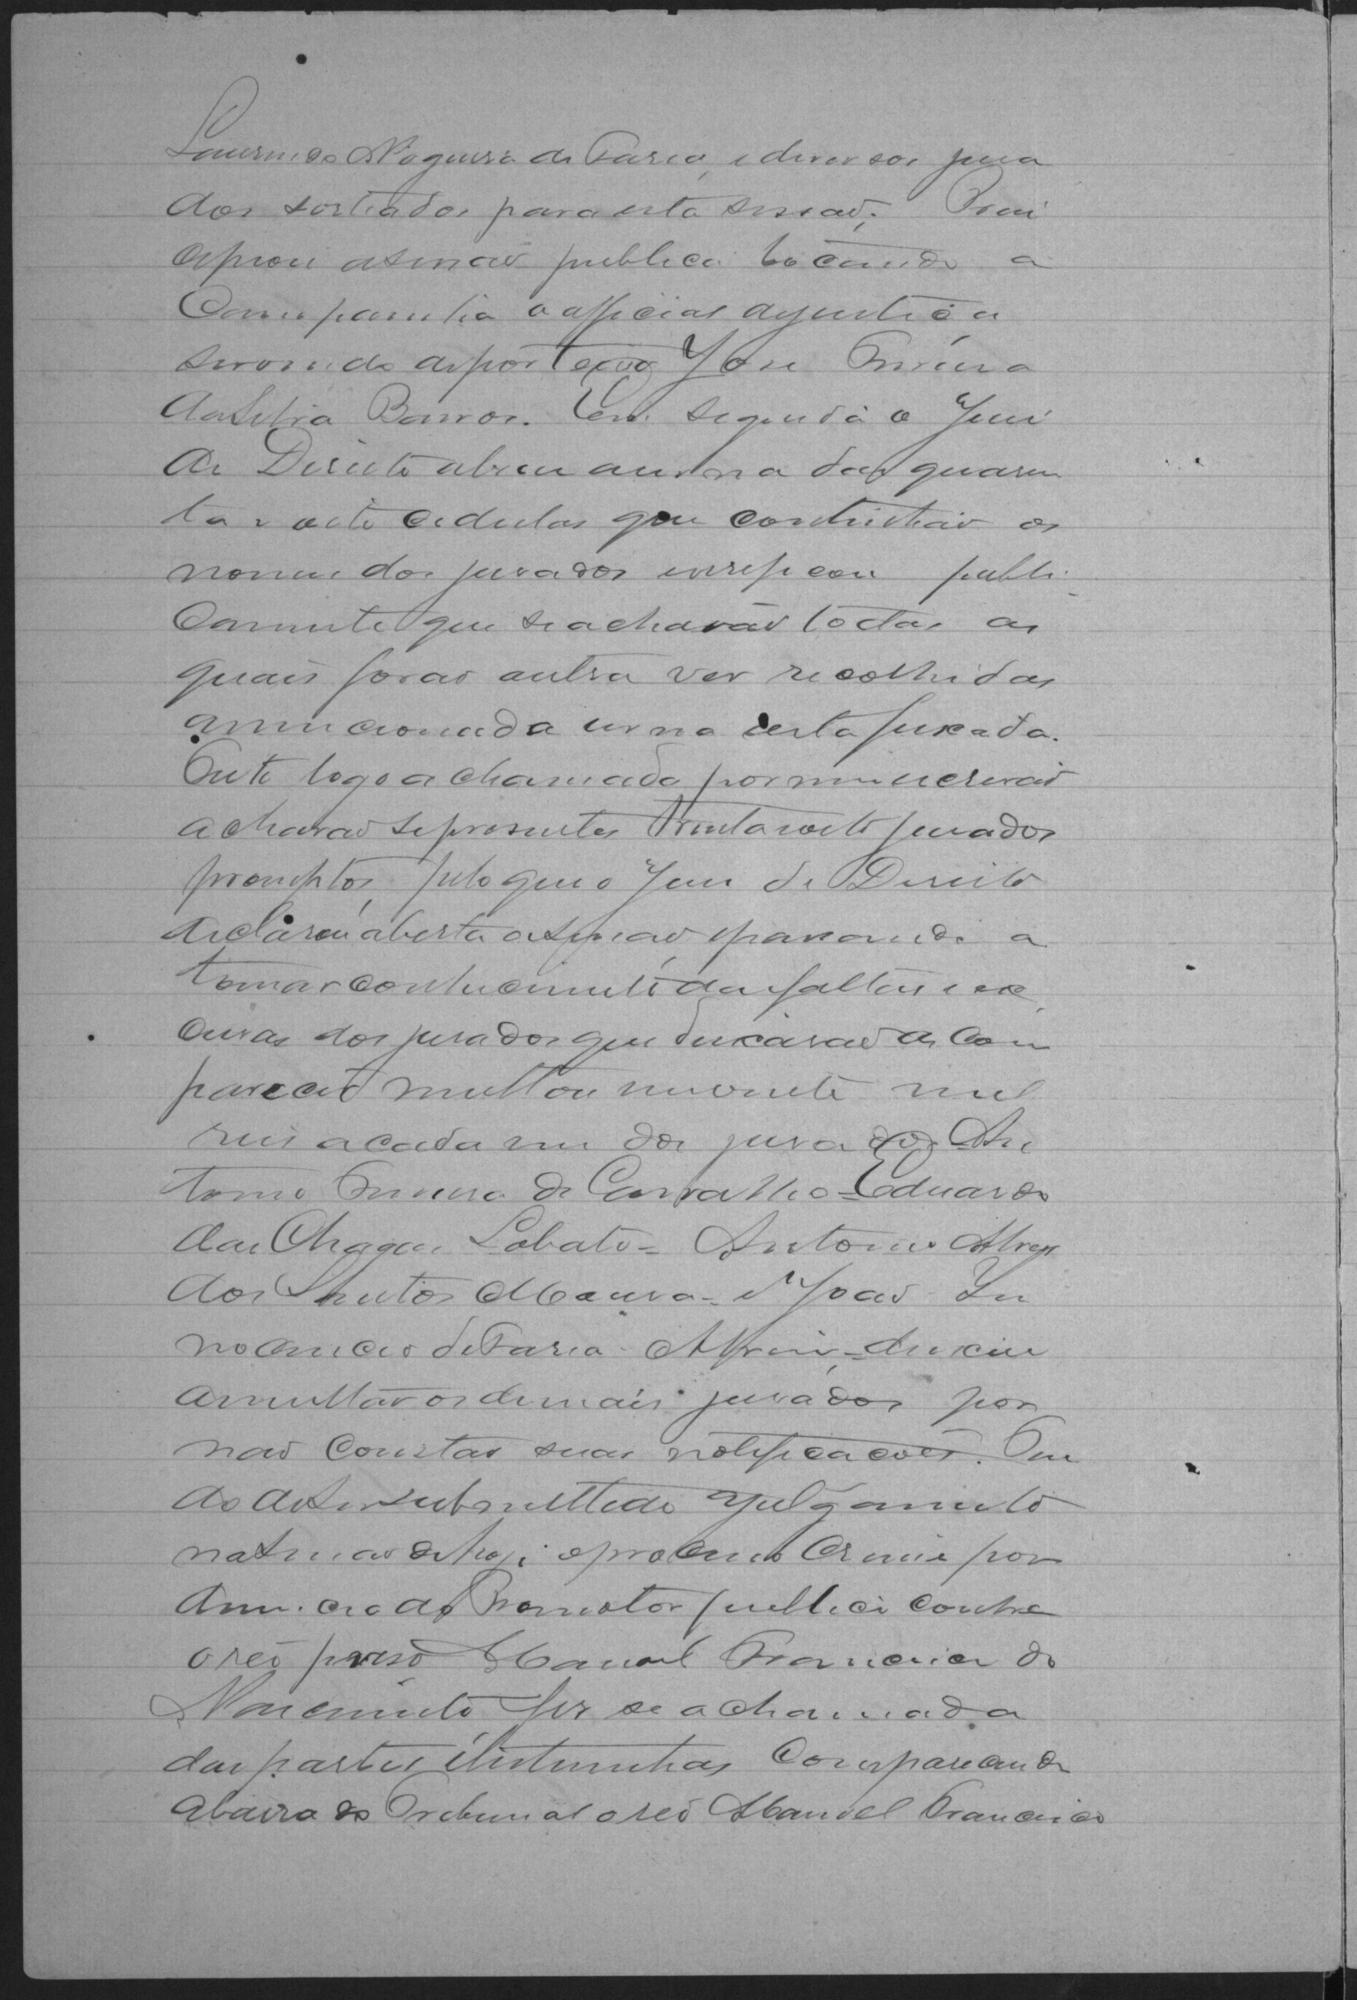 Lourindo Nogueira de Faria, e diversos jura
dos sorteados para esta sessaõ. Prin
cipiou a sessaõ publica tocando a
Campainha o official de justiça
servindo de porteiro José Ferreira
da Silva Barros. Em seguida o Juiz
de Direito abrio a urna das quaren
ta e oito cedulas que continhaõ os
nomes dos jurados e verificou publi
camente que se achavaõ todas as
quais foraõ outra vez recolhidas
a mencionada urna e esta fixada.
Feito logo a chamada por mim escrivaõ
acharaõ se presentes trinta e oito jurados
promptos, pelo que o Juiz de Direito
declarou aberta a sessaõ, e passando a
tomar conhecimento das faltas e es
cuzas dos jurados que deixaraõ de com
parecer multou em vinte mil
reis a cada um dos jurados An
tonio Ferreira de Carvalho - Eduardo
das Chagas Lobato - Antonio Alves
dos Santos Moura - e Joaõ In
nocencio de Faria deixou
de multar os demais jurados por
naõ constar suas notificacões. Ten
do de ser submettido a julgamento
na sessaõ de hoje o processo crime por
denuncia do Promotor publico contra
o reo preso Manoel Francisco do
Nascimento fez se a chamada
das partes e testemunhas comparecendo
a barra do Tribunal o reo Manoel Francisco